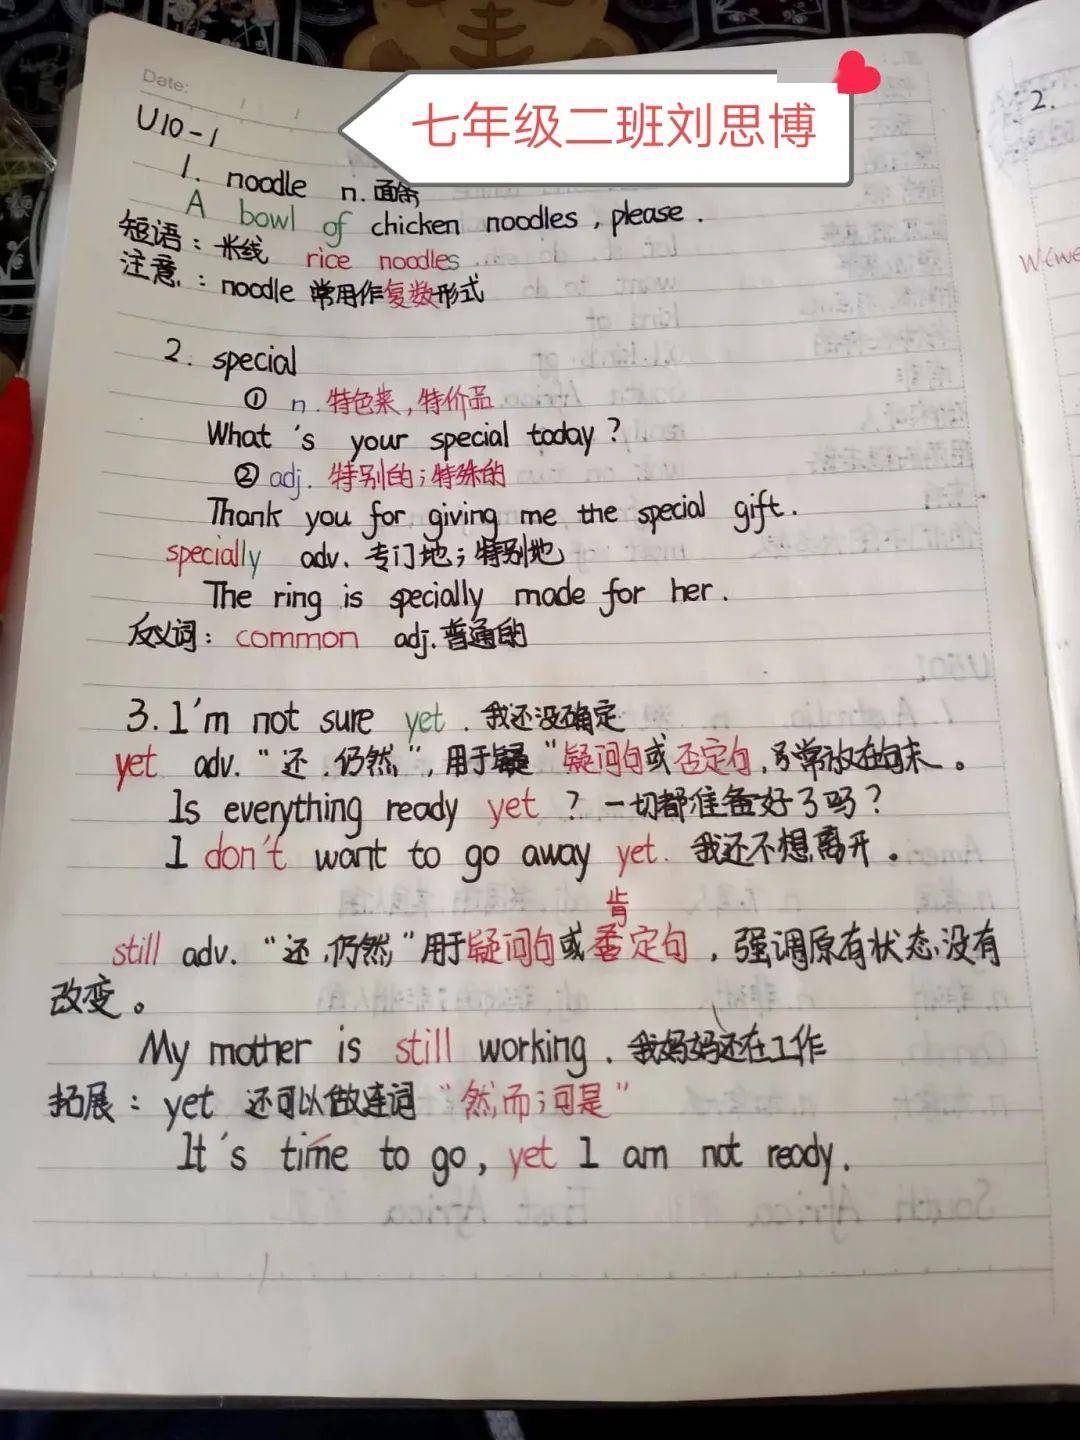 七年级二班刘思博
Date:
U10-1
1. noodle n.面条
A bowl of chicken noodles, please.
短语：米线 rice noodles
注意：noodle 常用作复数形式
2. special
① n.特色菜，特价品
What's your special today?
② adj. 特别的；特殊的
Thank you for giving me the special gift.
specially adv. 专门地；特别地
The ring is specially made for her.
反义词：common adj.普通的
3. I'm not sure yet. 我还没确定
yet adv. "还，仍然"，用于疑"疑问句或否定句，常放在句末。
Is everything ready yet? 一切都准备好了吗？
I don't want to go away yet. 我还不想离开。
肯
still adv. "还，仍然"用于疑问句或否定句，强调原有状态没有
改变。
My mother is still working. 我妈妈还在工作
拓展：yet 还可以做连词 "然而；可是"
It's time to go, yet I am not ready.
2.